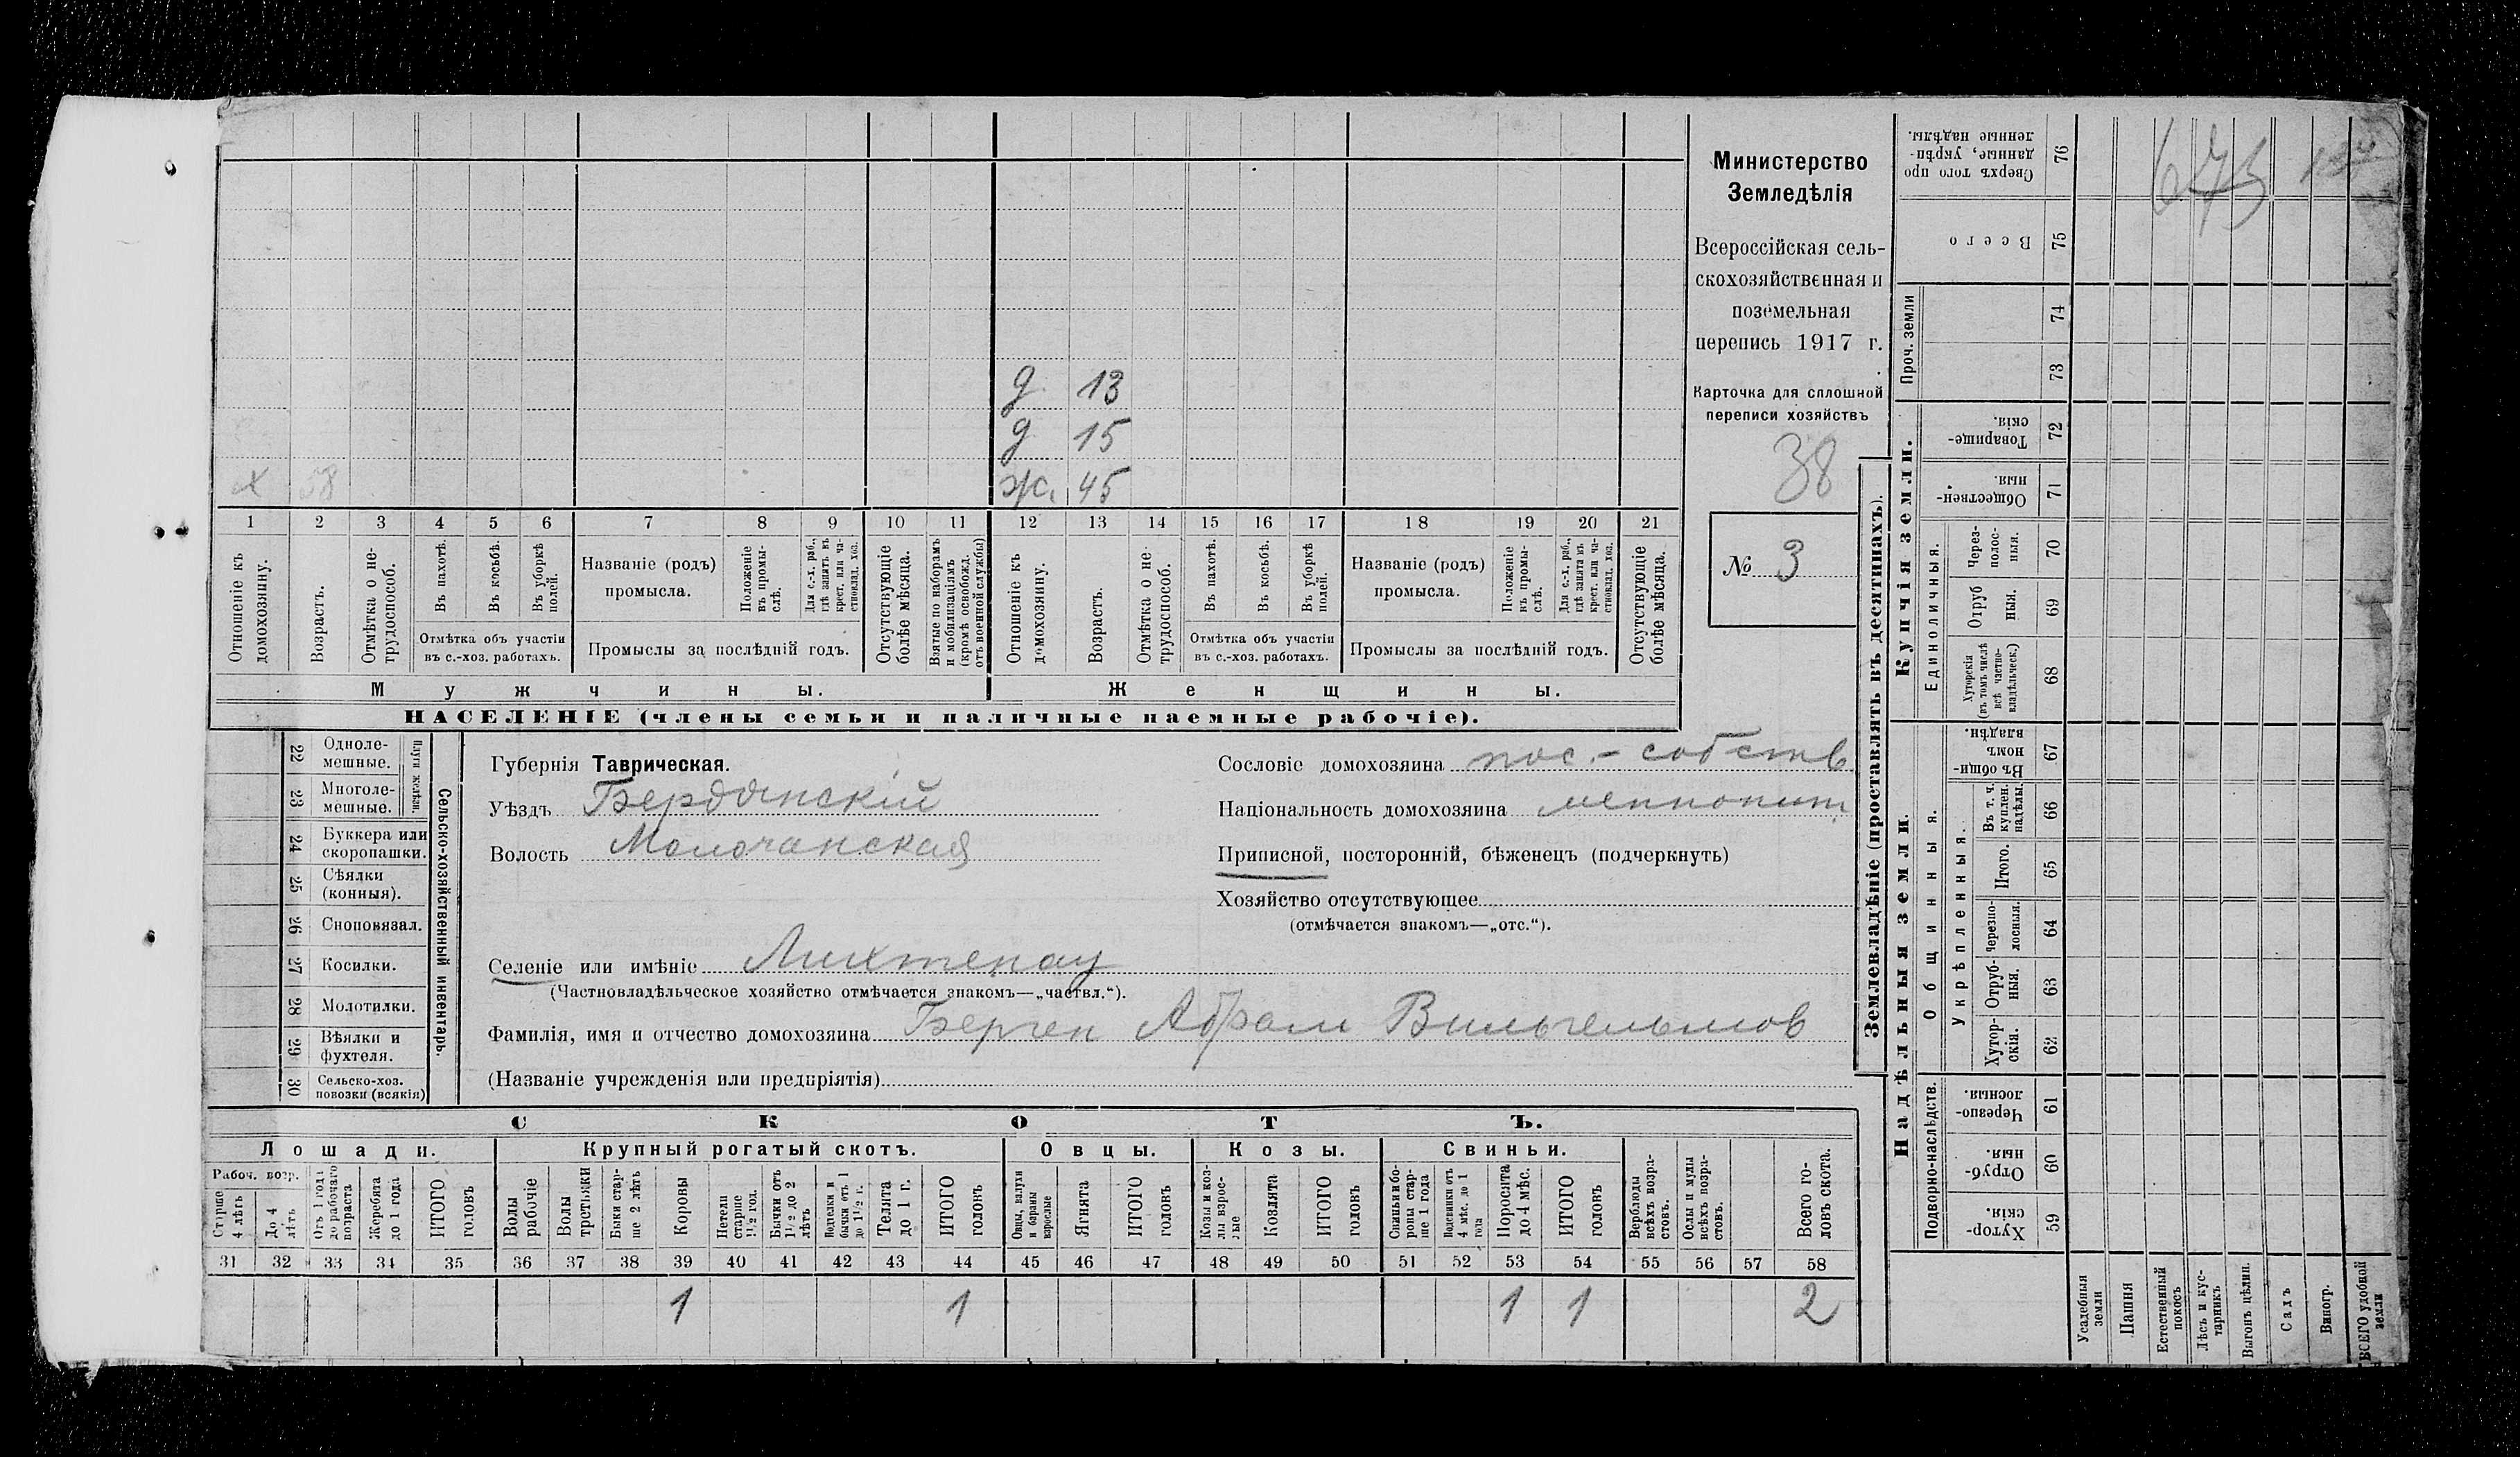 Министерство
Земледѣлія
Всероссійская сель-
скохозяйственная и
поземельная
перепись 1917 г.
Карточка для сплошной
переписи хозяйствъ
38
№ 3
д 13
д 15
х 58 ж. 45
1 2 3 4 5 6 7 8 9 10 11 12 13 14 15 16 17 18 19 20 21
Отношеніе къ домохозяину.
Возрастъ.
Отмѣтка о не-трудоспособ.
Въ пахотѣ.
Въ косьбѣ.
Въ уборкѣ полей.
Отмѣтка объ участіи
въ с.-хоз. работахъ.
Названіе (родъ)
промысла.
Положеніе въ промы-слѣ.
Для с.-х. раб., гдѣ занятъ въ крест. или ча-стновлад. хоз.
Промыслы за послѣдній годъ.
Отсутствующіе болѣе мѣсяца.
Взятые по наборамъ и мобилизаціямъ (кромѣ освобожд. отъ военной службы)
Отношеніе къ домохозяину.
Возрастъ.
Отмѣтка о не-трудоспособ.
Въ пахотѣ.
Въ косьбѣ.
Въ уборкѣ полей.
Отмѣтка объ участіи
въ с.-хоз. работахъ.
Названіе (родъ)
промысла.
Положеніе въ промы-слѣ.
Для с.-х. раб., гдѣ занята въ крест. или ча-стновлад. хоз.
Промыслы за послѣдній годъ.
Отсутствующіе болѣе мѣсяца.
Мужчины.
Женщины.
НАСЕЛЕНІЕ (члены семьи и наличные наемные рабочіе).
Сельско-хозяйственный инвентарь.
Плуги желѣзн.
22 Однолемешные.
23 Многолемешные.
24 Буккера или скоропашки.
25 Сѣялки (конныя).
26 Сноповязал.
27 Косилки.
28 Молотилки.
29 Вѣялки и фухтеля.
30 Сельско-хоз. повозки (всякія)
Губернія Таврическая.
Уѣздъ Бердянскій
Волость Молочанская
Сословіе домохозяина пос.-собств
Національность домохозяина меннонит
Приписной, посторонній, бѣженецъ (подчеркнуть)
Хозяйство отсутствующее
(отмѣчается знакомъ—„отс.“).
Селеніе или имѣніе Лихтенау
(Частновладѣльческое хозяйство отмѣчается знакомъ—„частвл.“).
Фамилія, имя и отчество домохозяина Берген Абрам Вильгельмов
(Названіе учрежденія или предпріятія)
СКОТЪ.
Лошади. Крупный рогатый скотъ. Овцы. Козы. Свиньи.
Рабоч. возр.
Старше 4 лѣтъ
До 4 лѣтъ
Отъ 1 года до рабочаго возраста
Жеребята до 1 года
ИТОГО головъ
Волы рабочіе
Волы третьяки
Быки стар-ше 2 лѣтъ
Коровы
Нетели старше 1½ год.
Бычки отъ 1½ до 2 лѣтъ
Подтелки и бычки отъ 1 до 1½ г.
Телята до 1 г.
ИТОГО головъ
Овцы, валухи и бараны взрослые
Ягнята
ИТОГО головъ
Козы и коз-лы взрос-лые
Козлята
ИТОГО головъ
Свиньи и бо-ровы стар-ше 1 года
Подсвинки отъ 4 мѣс. до 1 года
Поросята до 4 мѣс.
ИТОГО головъ
Верблюды всѣхъ возра-стовъ.
Ослы и мулы всѣхъ возра-стовъ.
Всего го-ловъ скота.
31 32 33 34 35 36 37 38 39 40 41 42 43 44 45 46 47 48 49 50 51 52 53 54 55 56 57 58
1 1 1 1 2
Землевладѣніе (проставлять въ десятинахъ).
Надѣльныя земли.
Купчія земли.
Проч. земли
Подворно-наслѣдств.
Общинныя.
Укрѣпленныя.
Единоличныя.
Сверхъ того про-данные, укрѣп-ленные надѣлы. 76
Всего 75
74
73
Товарище-скія. 72
Обществен-ныя. 71
Через-полос-ныя. 70
Отруб ныя. 69
Хуторскія (въ томъ числѣ всѣ частно-владѣльческ.) 68
Въ общи-номъ владѣн. 67
Въ т. ч. куплен. надѣлы. 66
Итого. 65
Черезпо-лосныя. 64
Отруб-ныя. 63
Хутор-скія. 62
Черезпо-лосныя. 61
Отруб-ныя. 60
Хутор-скія. 59
Усадебныя земли
Пашня
Естественный покосъ
Лѣсъ и кус-тарникъ
Выгонъ цѣлин.
Садъ
Виногр.
ВСЕГО удобной земли